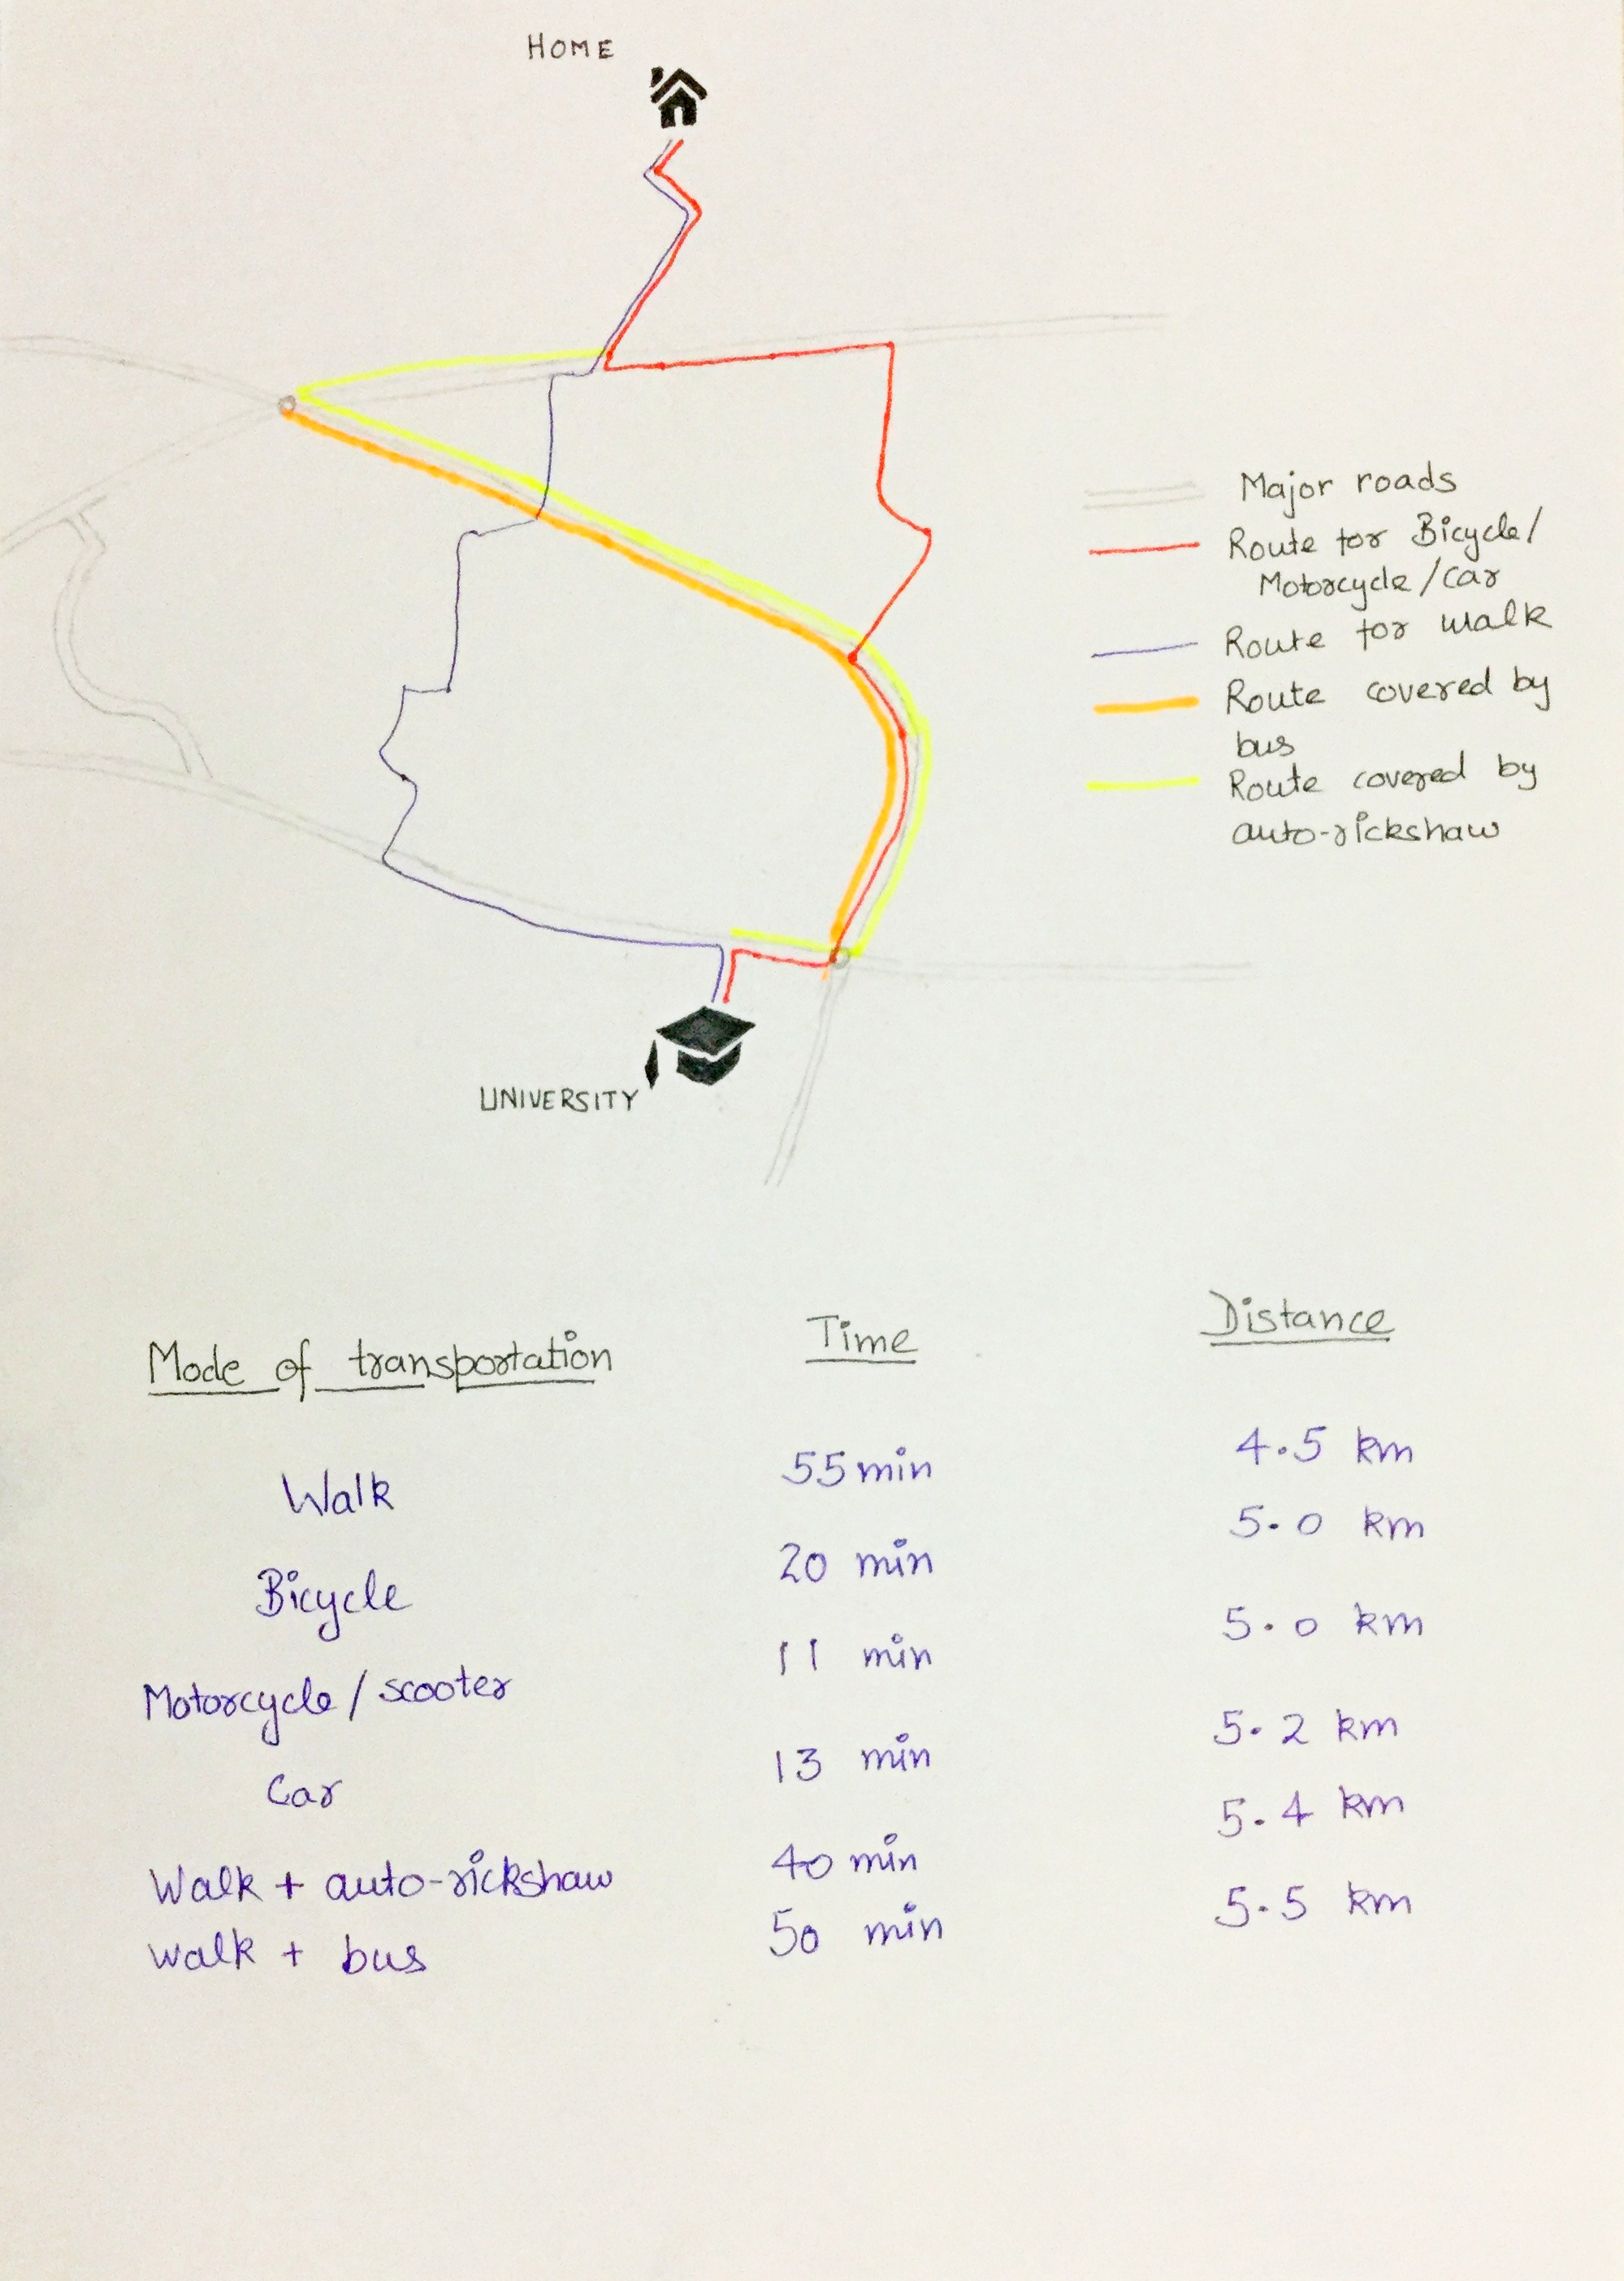 HOME
Major roads
Route for Bicycle/
Motorcycle/car
Route for walk
Route covered by
bus
Route covered by
auto-rickshaw
UNIVERSITY
Mode of transportation Time Distance
Walk 55 min 4.5 km
Bicycle 20 min 5.0 km
Motorcycle/scooter 11 min 5.0 km
Car 13 min 5.2 km
Walk + auto-rickshaw 40 min 5.4 km
Walk + bus 50 min 5.5 km